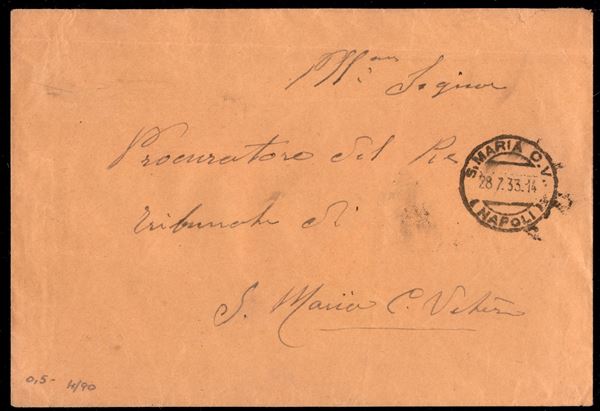 Ill.mo Signor
Procuratore del Re
Tribunale di
S. Maria C. Vetere
S. MARIA C.V.
28.7.33.-14
(NAPOLI)
0,5- 4/90